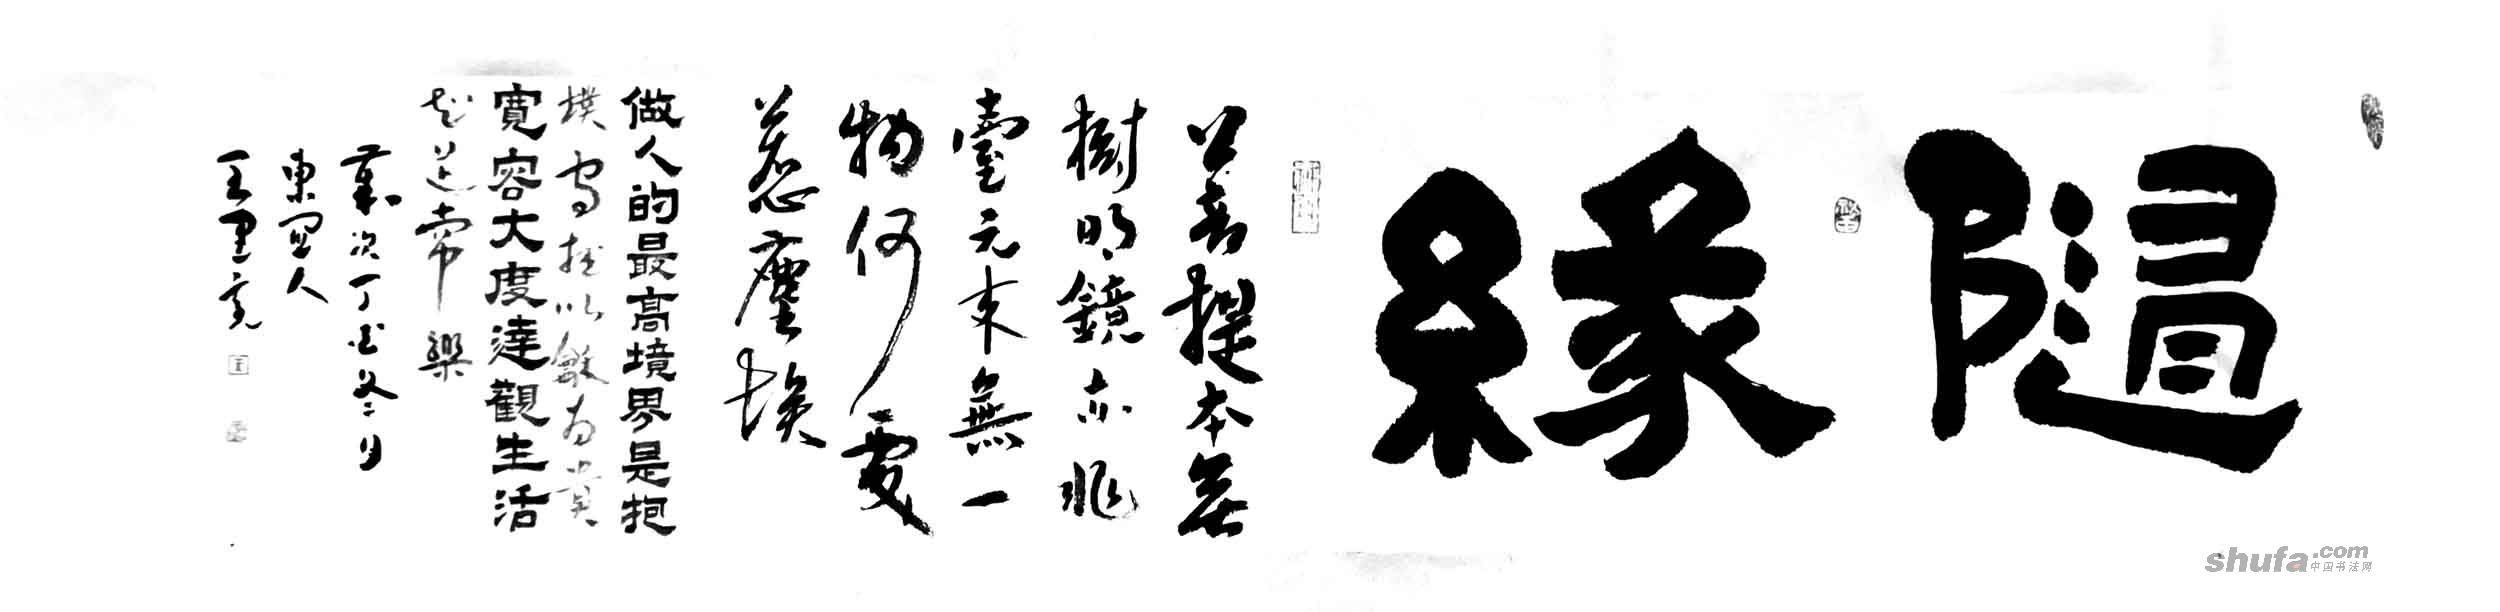 隨緣
菩提本無
樹明鏡亦非
臺元来無一
物何處
惹塵埃
做人的最高境界是抱
樸守拙以龢為貴
寬容大度達觀生活
知足常樂
歲次丁亥冬月
東人
王
shufa.com
中国书法网